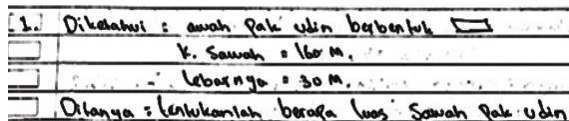 1. Diketahui : awah Pak udin berbentuk
K. Sawah = 160 M.
lebarnya = 30 M.
Ditanya = tentukanlah berapa luas Sawah Pak udin